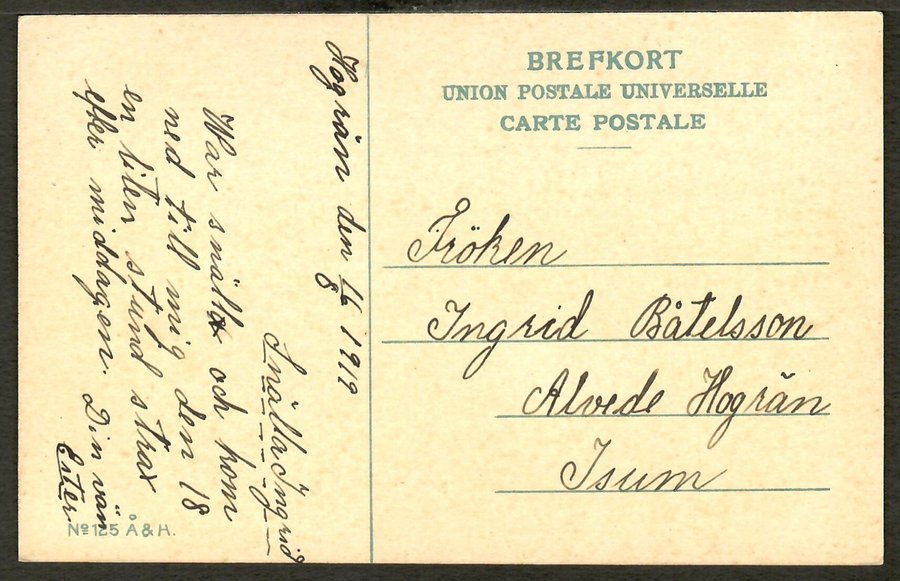 Hogrän den 16/8 1919
Snälla Ingrid
War snäll och kom
ned till mig den 18
en liten stund strax
efter middagen. Din vän
Ester
BREFKORT
UNION POSTALE UNIVERSELLE
CARTE POSTALE
Fröken
Ingrid Båtelsson
Alvede Hogrän
Isum
No 125 Å & H.